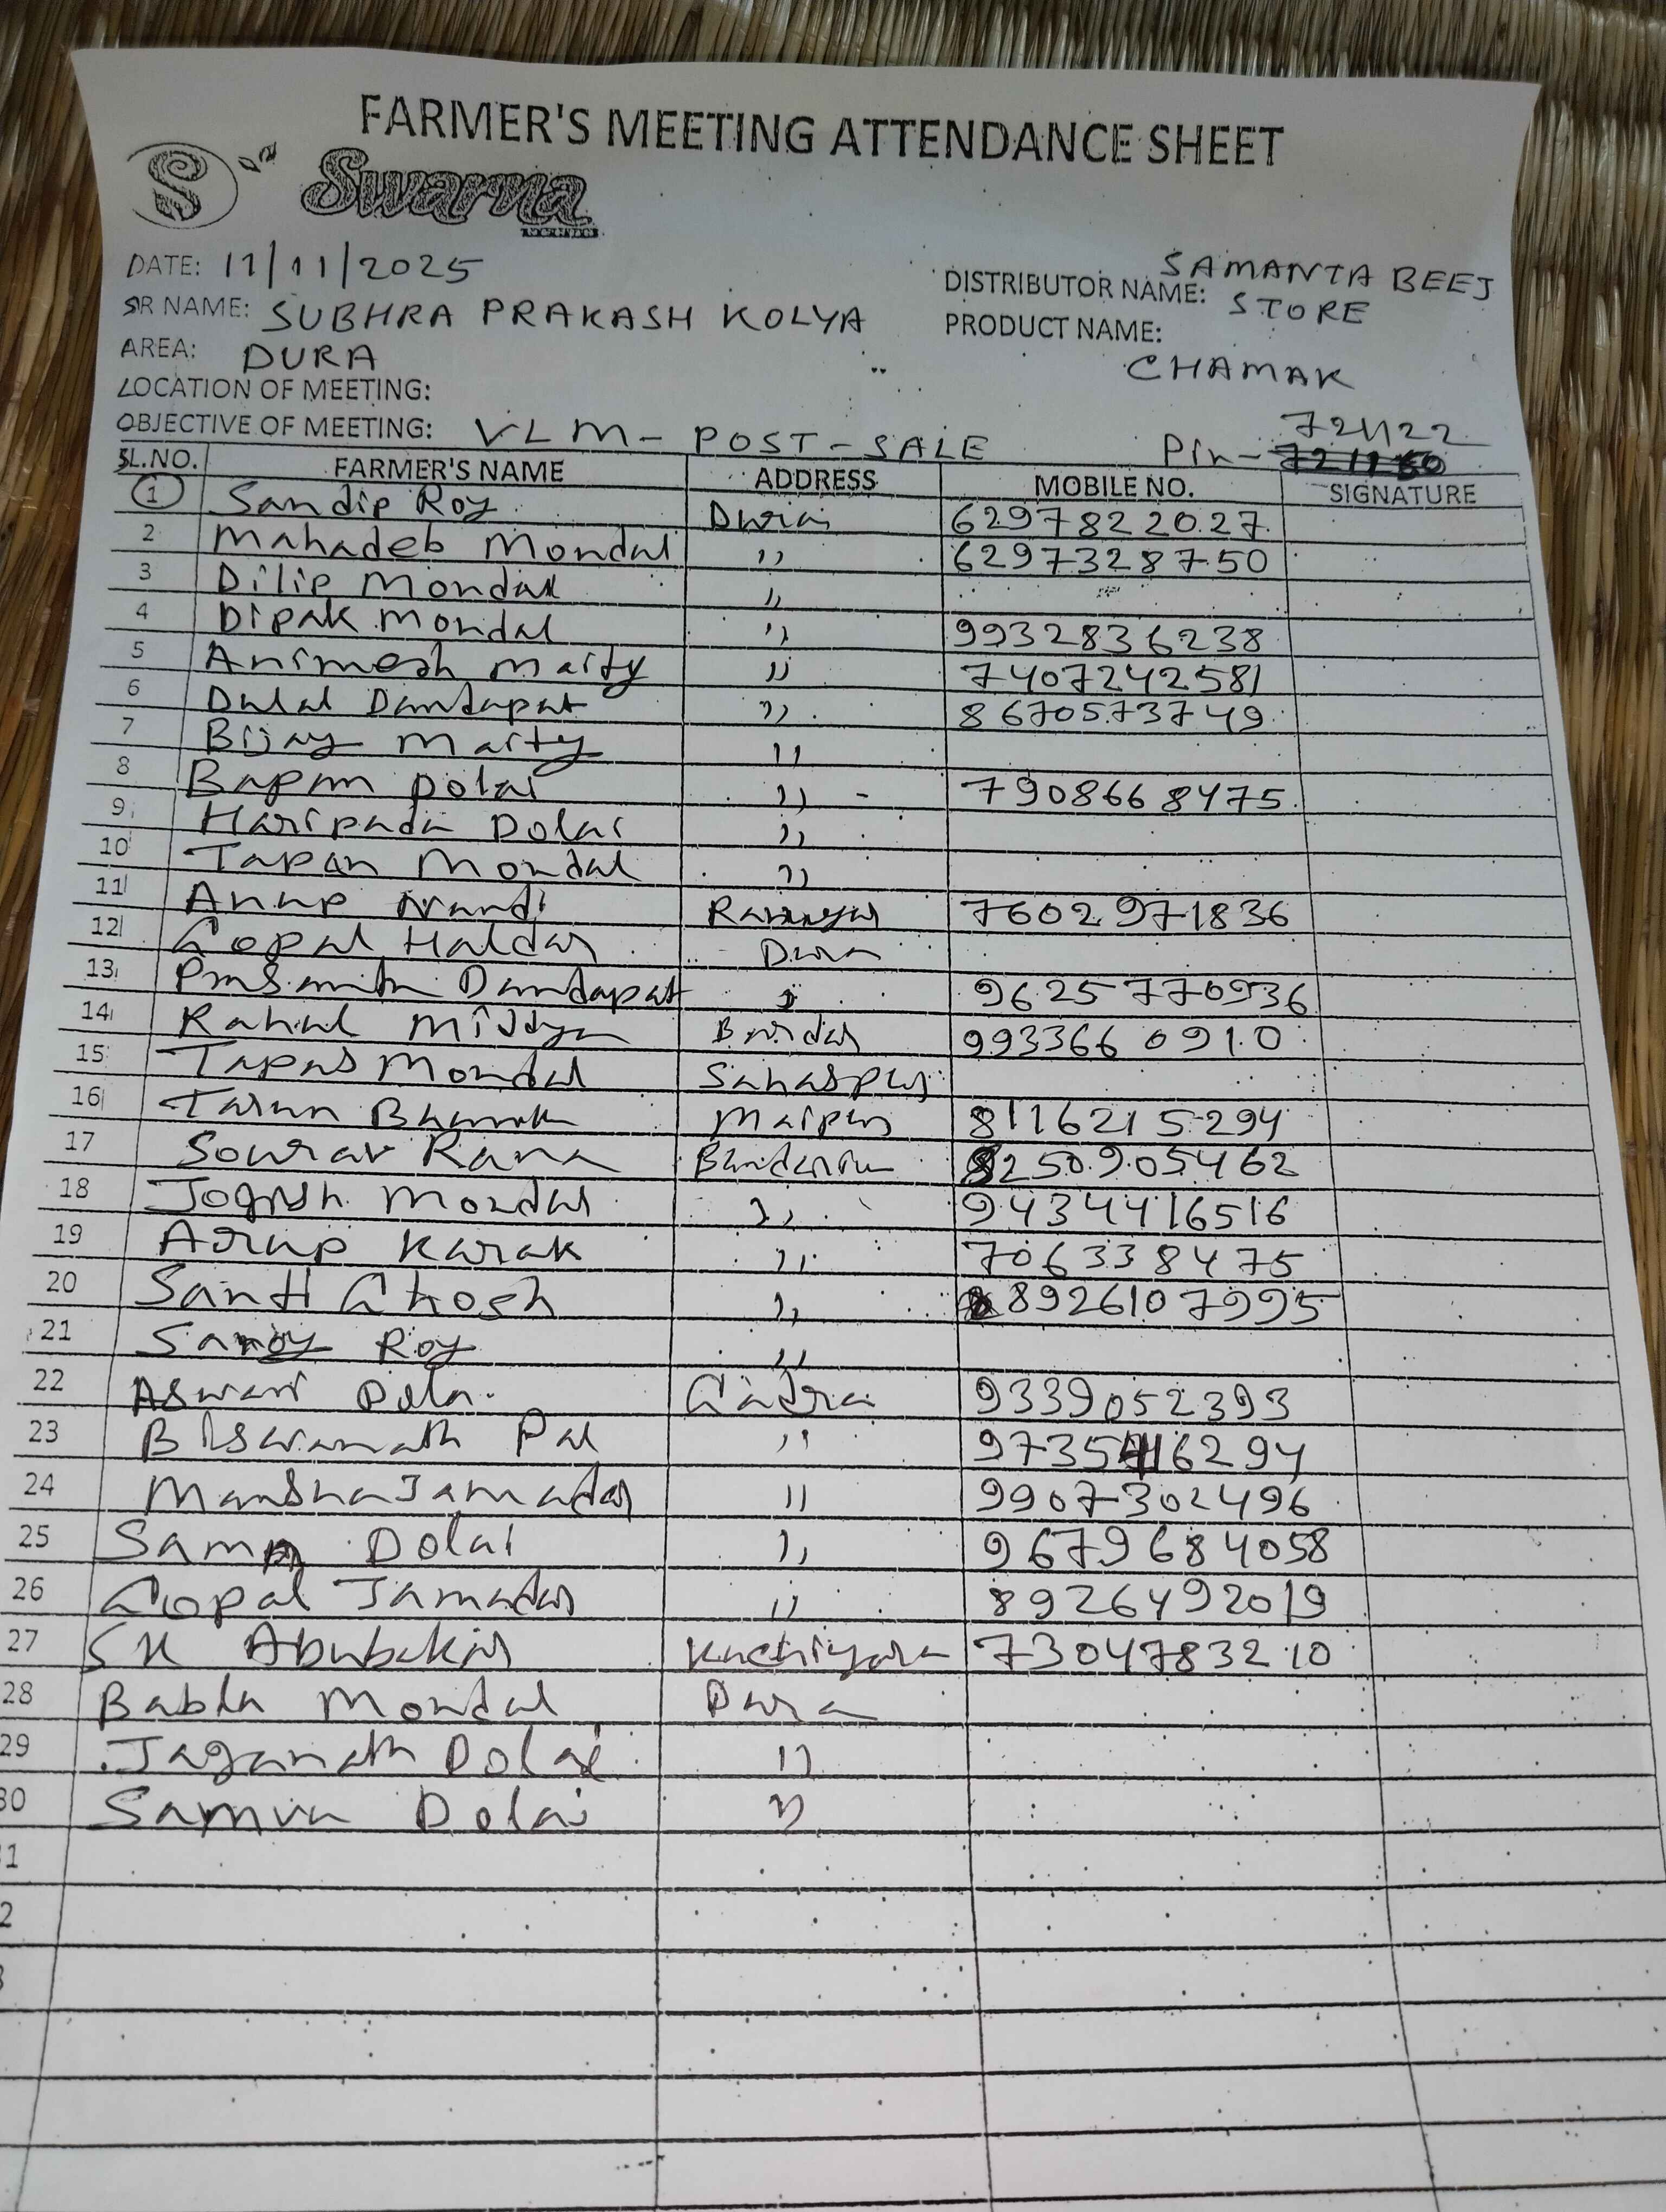 FARMER'S MEETING ATTENDANCE SHEET
S Swarna
DATE: 11/11/2025
DISTRIBUTOR NAME: SAMANTA BEEJ STORE
SR NAME: SUBHRA PRAKASH KOLYA
PRODUCT NAME: CHAMAK
AREA: DURA
LOCATION OF MEETING:
OBJECTIVE OF MEETING: VLM-POST-SALE
Pin- 721122
SL.NO. FARMER'S NAME ADDRESS MOBILE NO. SIGNATURE
1 Sandip Roy Dura 6297822027
2 Mahadeb Mondal ,, 6297328750
3 Dilip Mondal ,,
4 Dipak Mondal ,, 9932836238
5 Animesh Maity ,, 7407242581
6 Dulal Dandapat ,, 8670573749
7 Bijay Maity ,,
8 Bapan Dolai ,, 7908668475
9 Haripada Dolai ,,
10 Tapan Mondal ,,
11 Anup Nandi 7602971836
12 Gopal Haldar Dura
13 Prasanta Dandapat ,, 9625770936
14 Rahul Middya 9933660910
15 Tapas Mondal Sahaspur
16 Tarun Maipur 8116215294
17 Sourav Rana 8250905462
18 Jogesh Mondal ,, 9434416516
19 Arup Karak ,, 706338475
20 Santi Ghosh ,, 8926107995
21 Roy ,,
22 Aswani 9339052393
23 Biswanath Pal ,, 9735416294
24 Jamadar ,, 9907302496
25 Dolai ,, 9679684058
26 Gopal Jamadar ,, 8926492019
27 SK Abubakar 7304783210
28 Babla Mondal Dura
29 Jaganath Dolai ,,
30 Dolai ,,